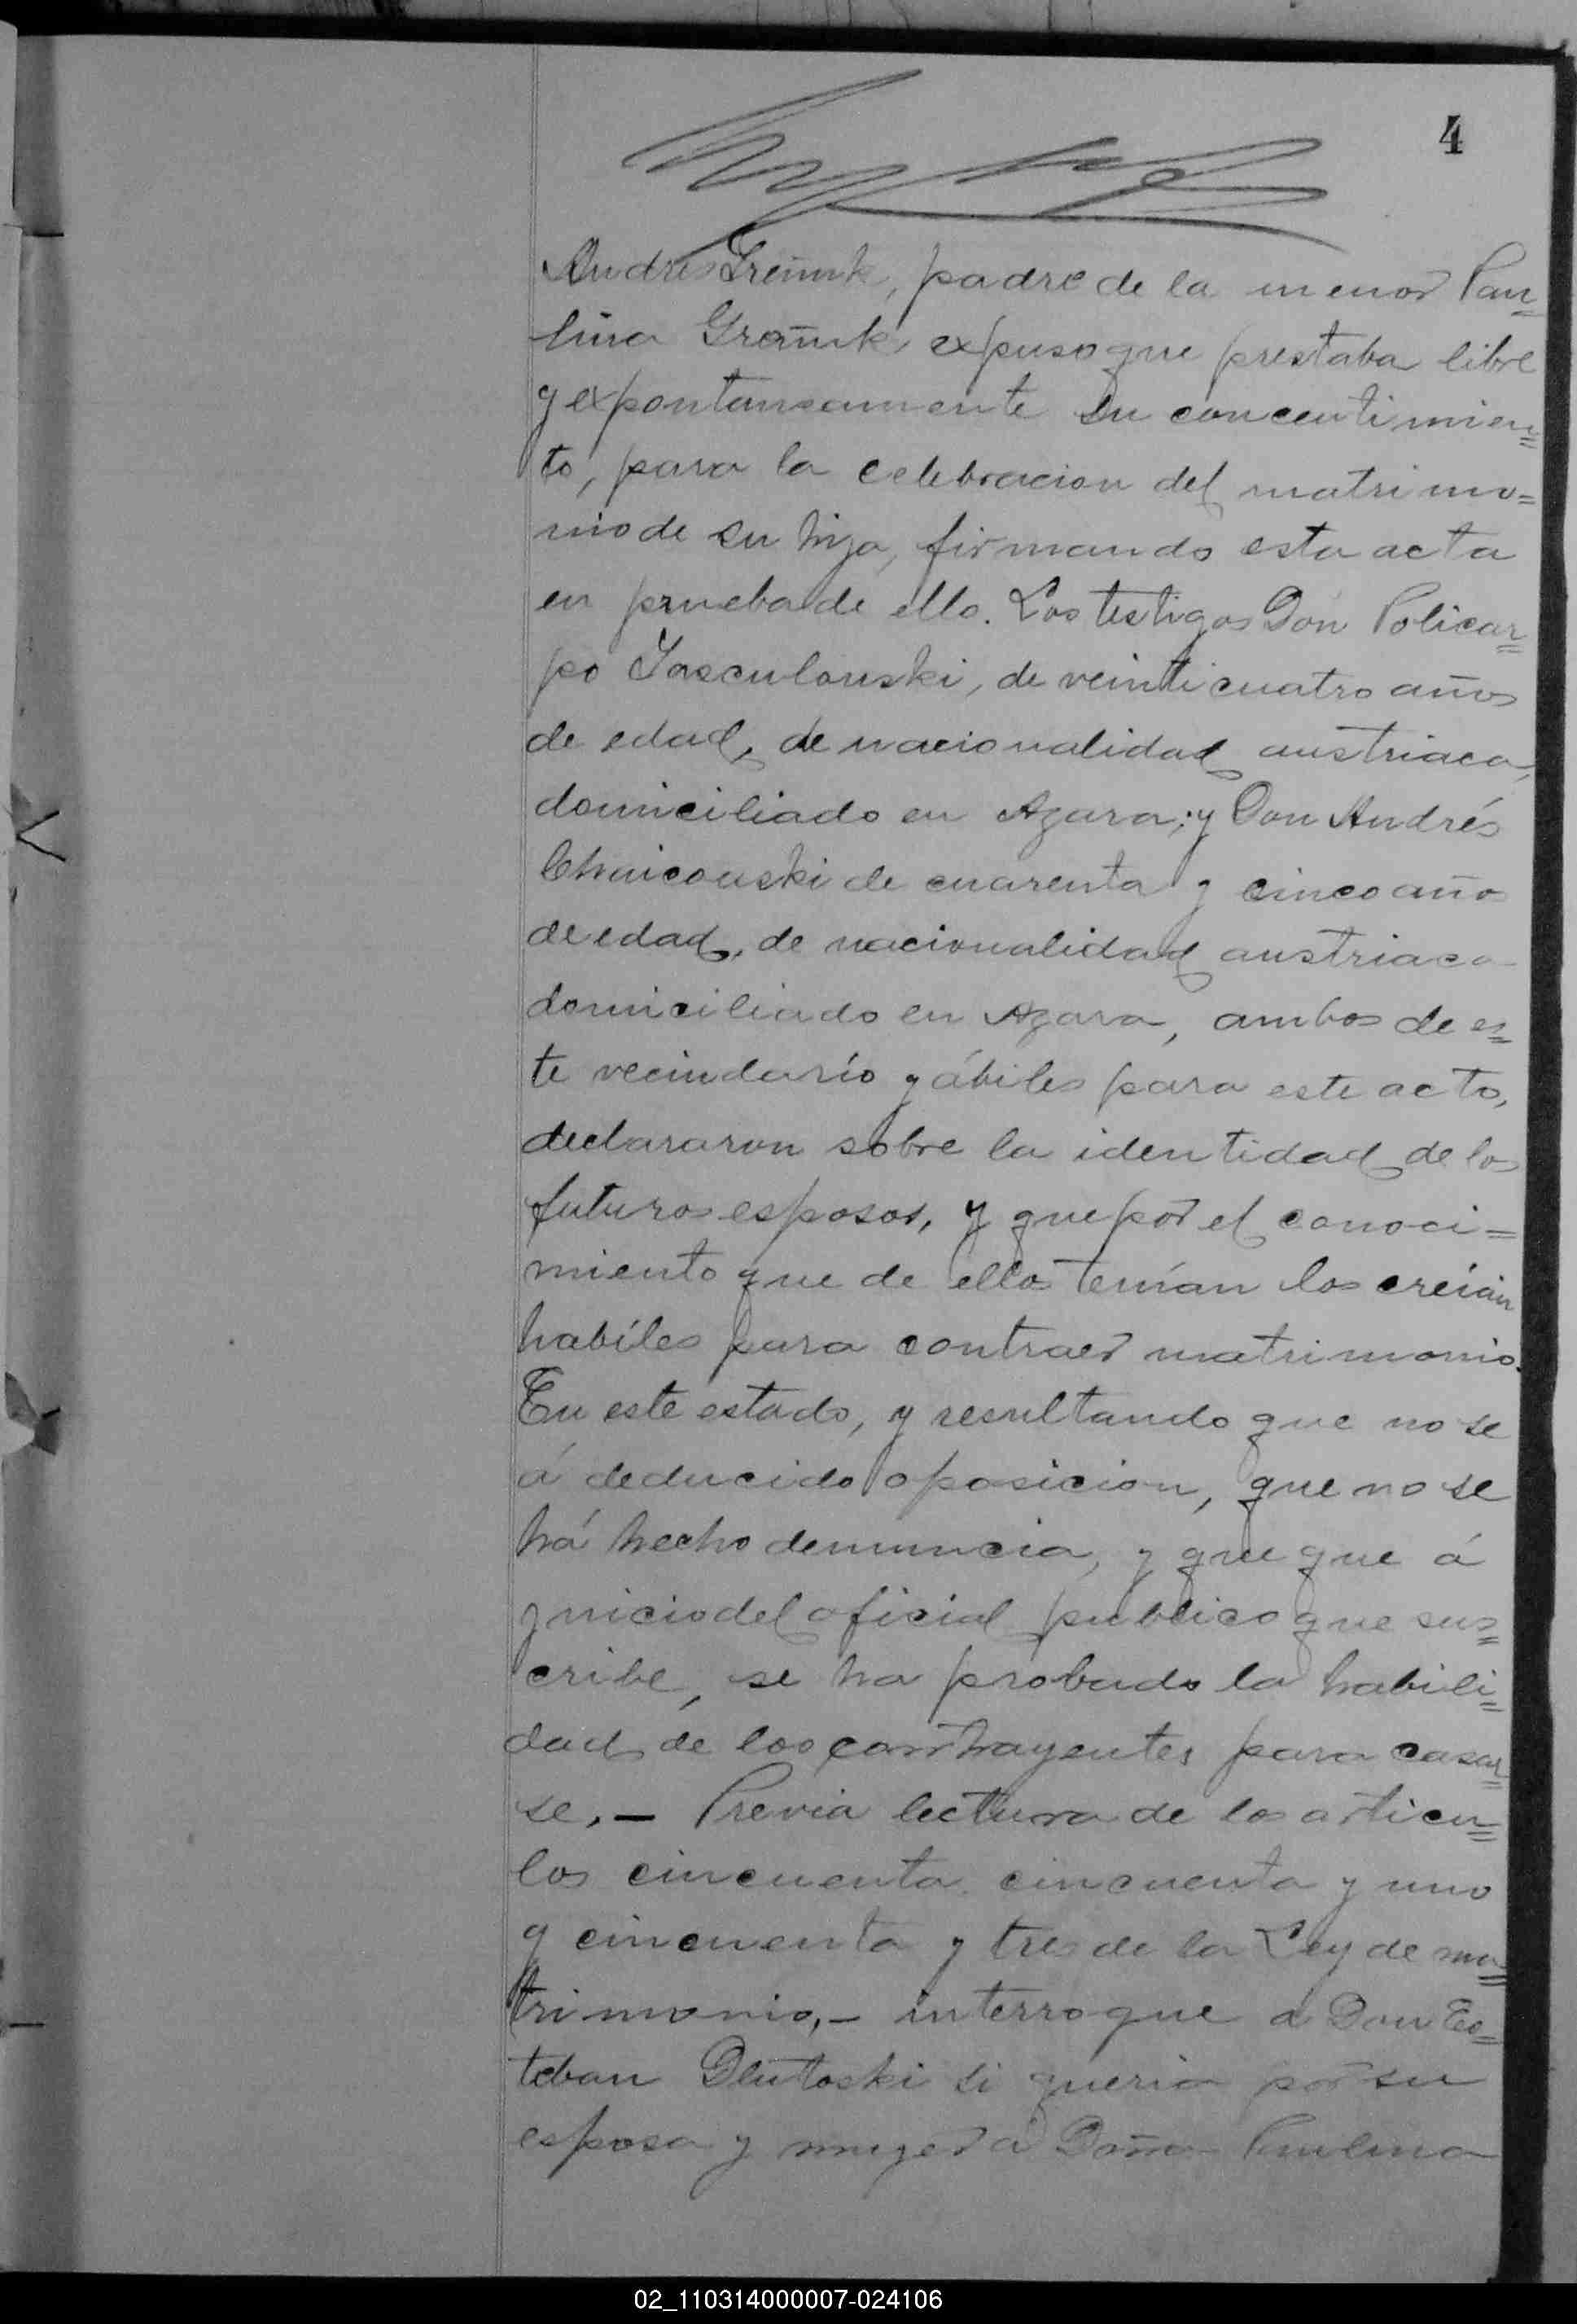 4
Andrés Greñuk, padre de la menor Pau=
lina Greñuk, expuso que prestaba libre
y expontaneamente su concentimien=
to, para la celebracion del matrimo=
nio de su hija, firmando esta acta
en prueba de ello. Los testigos Don Policar=
po Jasculouski, de veinticuatro años
de edad, de nacionalidad austriaca,
domiciliado en Azara; y Don Andrés
Chaicouski de cuarenta y cinco año
de edad, de nacionalidad austriaca
domiciliado en Azara, ambos de es=
te vecindario y ábiles para este acto,
declararon sobre la identidad de los
futuros esposos, y que por el conoci=
miento que de ellos tenían los creían
habíles para contraer matrimonio.
En este estado, y resultando que no se
á deducido oposicion, que no se
há hecho denuncia, y que que á
juicio del oficial publico que sus=
cribe, se ha probado la habili=
dad de los contrayentes para casar=
se,— Previa lectura de los articu=
los cincuenta, cincuenta y uno
y cincuenta y tres de la Ley de ma=
trimonio,— interrogue a Don Es=
teban Dlutoski si queria por su
esposa y muger á Doña Paulina
02_110314000007-024106